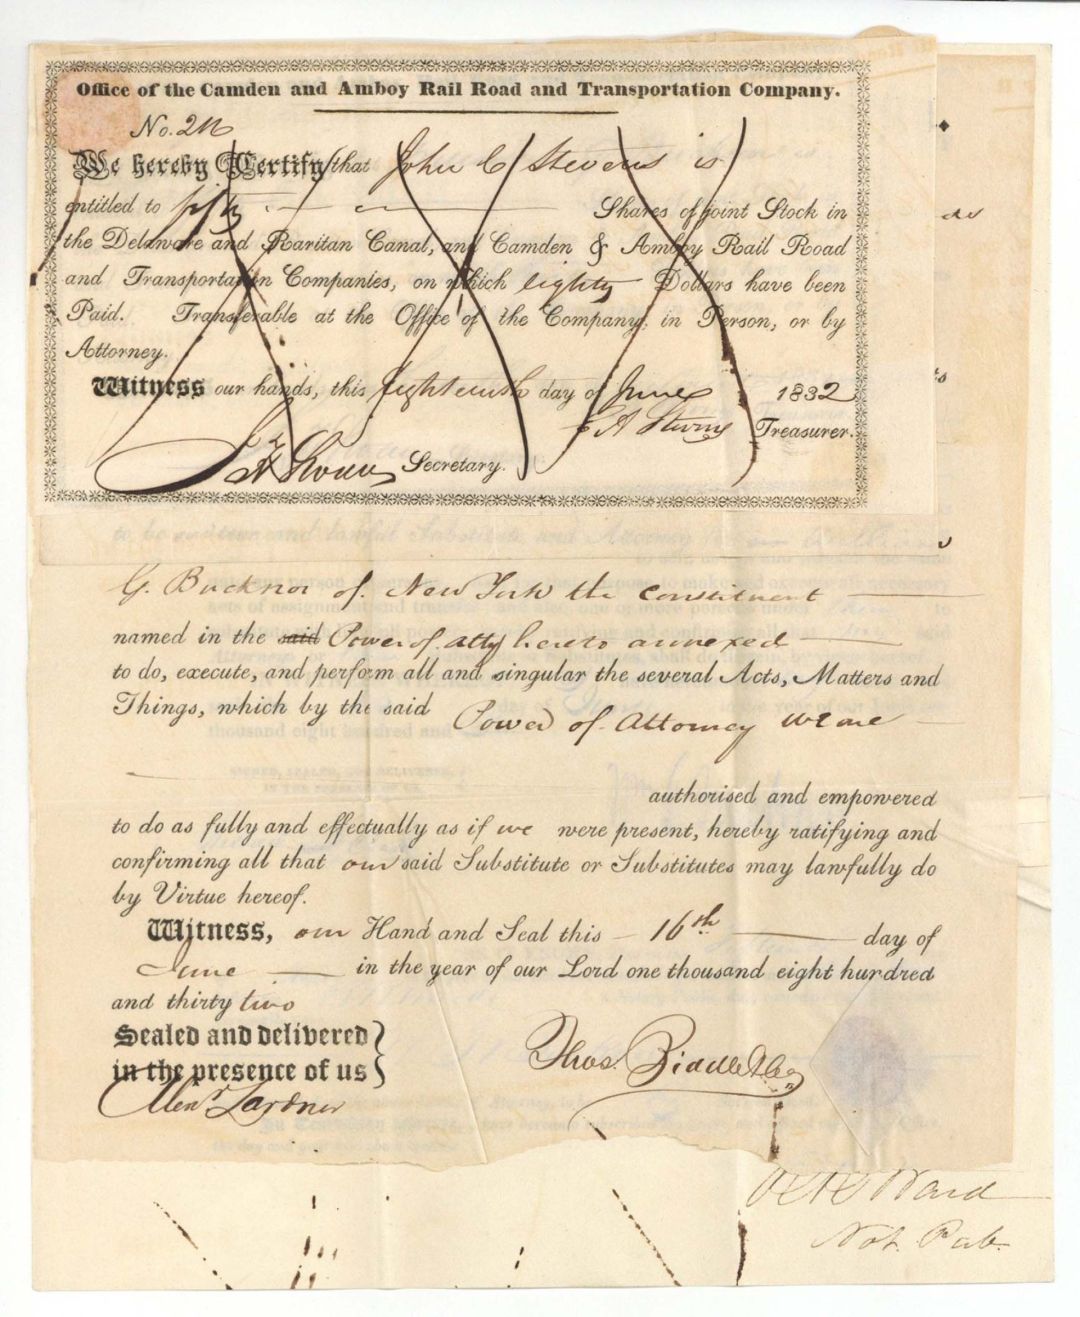 Office of the Camden and Amboy Rail Road and Transportation Company.
No.
We hereby Certify that John C Stevens is
entitled to fifty Shares of joint Stock in
the Delaware and Raritan Canal, and Camden & Amboy Rail Road
and Transportation Companies, on which eighty Dollars have been
Paid. Transferable at the Office of the Company, in Person, or by
Attorney.
Witness our hands, this eighteenth day of June 1832
E A Stevens Treasurer.
Secretary.
to be our true and lawful Substitute and Attorney
G. Bucknor of New York the Constituent
named in the said Power of atty hereto annexed
to do, execute, and perform all and singular the several Acts, Matters and
Things, which by the said Power of Attorney we are
authorised and empowered
to do as fully and effectually as if we were present, hereby ratifying and
confirming all that our said Substitute or Substitutes may lawfully do
by Virtue hereof.
Witness, our Hand and Seal this 16th day of
June in the year of our Lord one thousand eight hundred
and thirty two
Sealed and delivered
in the presence of us
Thos. Biddle & Co
Alexr Lardner
Ward
Not. Pub.